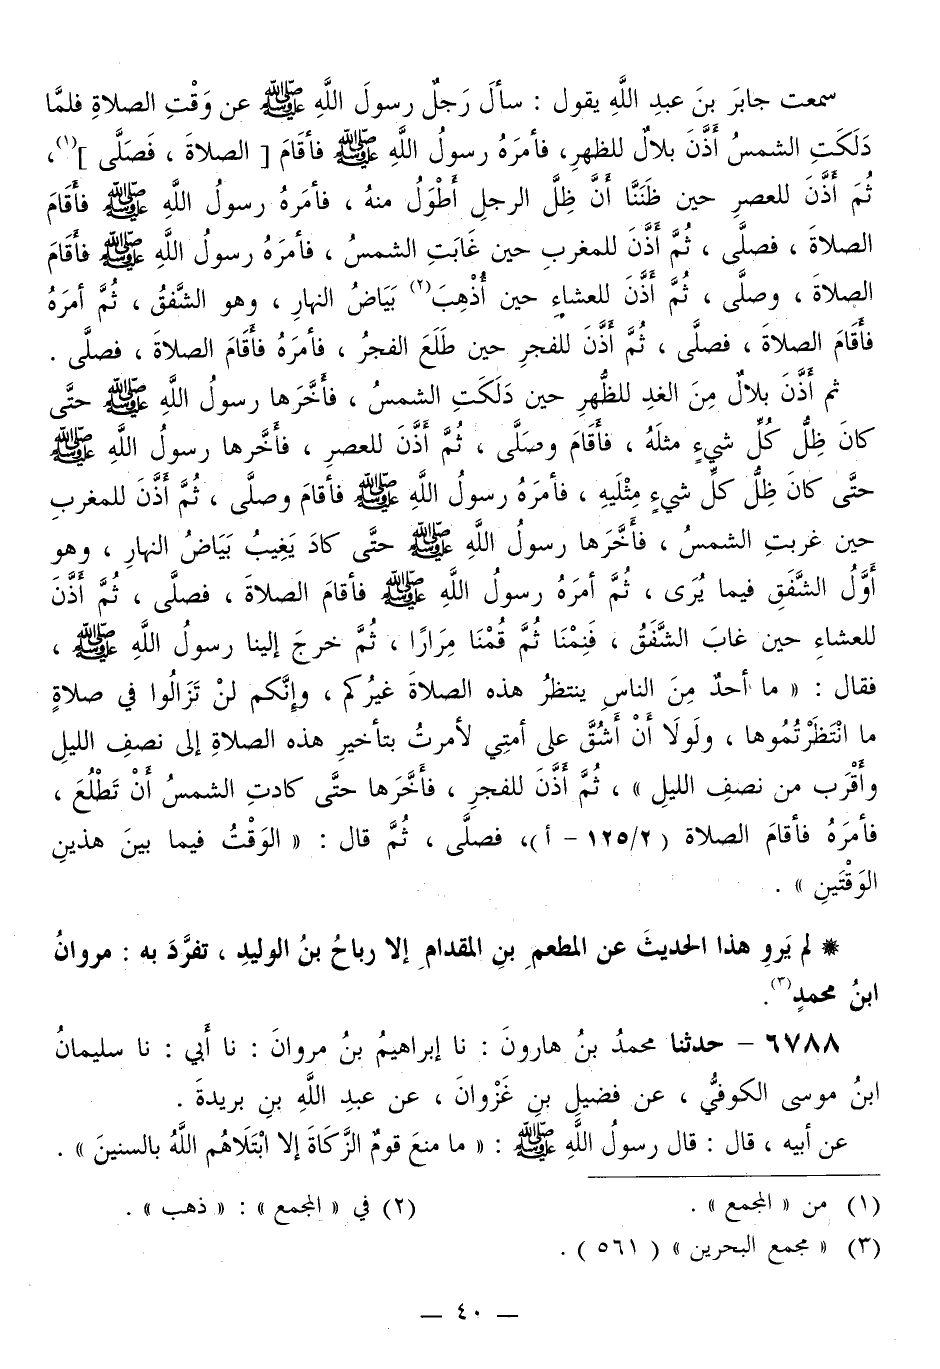 سمعت جابرَ بنَ عبدِ اللَّهِ يقول : سألَ رَجلٌ رسولَ اللَّهِ ﷺ عن وَقْتِ الصلاةِ فلمَّا
دَلَكَتِ الشمسُ أَذَّنَ بلالٌ للظهرِ، فأمرَهُ رسولُ اللَّهِ ﷺ فأقَامَ [ الصلاةَ ، فَصَلَّى ](١)،
ثُمَّ أَذَّنَ للعصرِ حين ظَنَنَّا أنَّ ظِلَّ الرجلِ أَطْوَلُ منهُ ، فأمرَهُ رسولُ اللَّهِ ﷺ فأَقَامَ
الصلاةَ ، فصلَّى ، ثُمَّ أَذَّنَ للمغربِ حين غَابَتِ الشمسُ ، فأمرَهُ رسولُ اللَّهِ ﷺ فأقَامَ
الصلاةَ ، وصلَّى ، ثُمَّ أَذَّنَ للعشاءِ حين أُذْهِبَ(٢) بَيَاضُ النهارِ ، وهو الشَّفقُ ، ثُمَّ أمرَهُ
فأَقَامَ الصلاةَ ، فصلَّى ، ثُمَّ أَذَّنَ للفجرِ حين طَلَعَ الفجرُ ، فأمرَهُ فأَقَامَ الصلاةَ ، فصلَّى .
ثم أَذَّنَ بلالٌ مِنَ الغدِ للظُّهرِ حين دَلَكَتِ الشمسُ ، فأَخَّرَها رسولُ اللَّهِ ﷺ حتَّى
كانَ ظِلُّ كُلِّ شيءٍ مثلَهُ ، فأقَامَ وصَلَّى ، ثُمَّ أَذَّنَ للعصرِ ، فأخَّرها رسولُ اللَّهِ ﷺ
حتَّى كانَ ظِلُّ كلِّ شيءٍ مِثْلَيهِ ، فأمرَهُ رسولُ اللَّهِ ﷺ فأقامَ وصلَّى ، ثُمَّ أَذَّنَ للمغربِ
حين غربتِ الشمسُ ، فأَخَّرَها رسولُ اللَّهِ ﷺ حتَّى كادَ يَغِيبُ بَيَاضُ النهارِ ، وهو
أَوَّلُ الشَّفَقِ فيما يُرَى ، ثُمَّ أمرَهُ رسولُ اللَّهِ ﷺ فأقامَ الصلاةَ ، فصلَّى ، ثُمَّ أَذَّنَ
للعشاءِ حين غابَ الشَّفَقُ ، فَنِمْنَا ثُمَّ قُمْنَا مِرَارًا ، ثُمَّ خرجَ إلينا رسولُ اللَّهِ ﷺ ،
فقال : « ما أحدٌ مِنَ الناسِ ينتظرُ هذه الصلاةَ غيرُكم ، وإنَّكم لنْ تَزَالُوا في صلاةٍ
ما انْتَظَرْتُمُوها ، ولَولَا أَنْ أَشُقَّ على أمتِي لأمرتُ بتأخيرِ هذه الصلاةِ إلى نصفِ الليلِ
وأقْرَب من نصفِ الليلِ » ، ثُمَّ أَذَّنَ للفجرِ ، فأخَّرَها حتَّى كادتِ الشمسُ أَنْ تَطْلُعَ ،
فأمرَهُ فأقامَ الصلاة ( ١٢٥/٢ - أ )، فصلَّى ، ثُمَّ قال : « الوَقْتُ فيما بينَ هذينِ
الوَقْتَينِ » .
* لم يَروِ هذا الحديثَ عن المطعمِ بنِ المقدامِ إلا رباحُ بنُ الوليدِ ، تفرَّدَ به : مروانُ
ابنُ محمدٍ(٣).
٦٧٨٨ - حدثنا محمدُ بنُ هارونَ : نا إبراهيمُ بنُ مروانَ : نا أَبي : نا سليمانُ
ابنُ موسى الكوفيُّ ، عن فضيلِ بنِ غَزْوانَ ، عن عبدِ اللَّهِ بنِ بريدةَ .
عن أبيه ، قال : قال رسولُ اللَّهِ ﷺ : « ما منعَ قومٌ الزَّكاةَ إلا ابْتَلَاهُم اللَّهُ بالسنينَ » .
(١) من « المجمع » . (٢) في « المجمع » : « ذهب » .
(٣) « مجمع البحرين » ( ٥٦١ ) .
— ٤٠ —